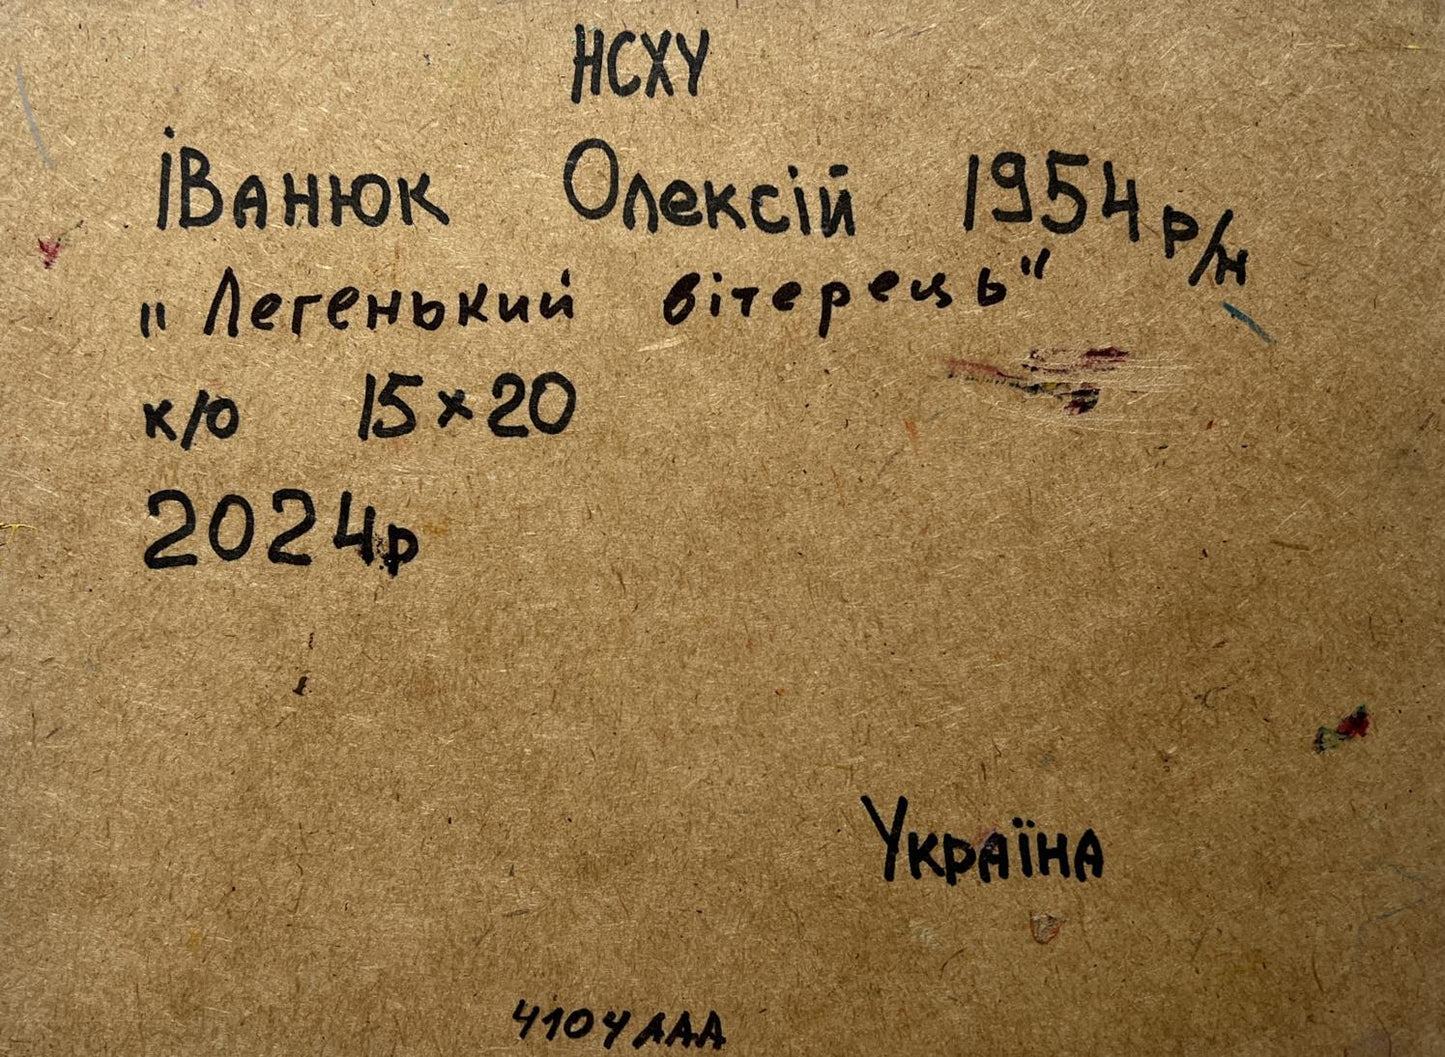 НСХУ
Іванюк Олексій 1954 р/н
"Легенький вітерець"
к/о 15×20
2024р
Україна
4104ААА